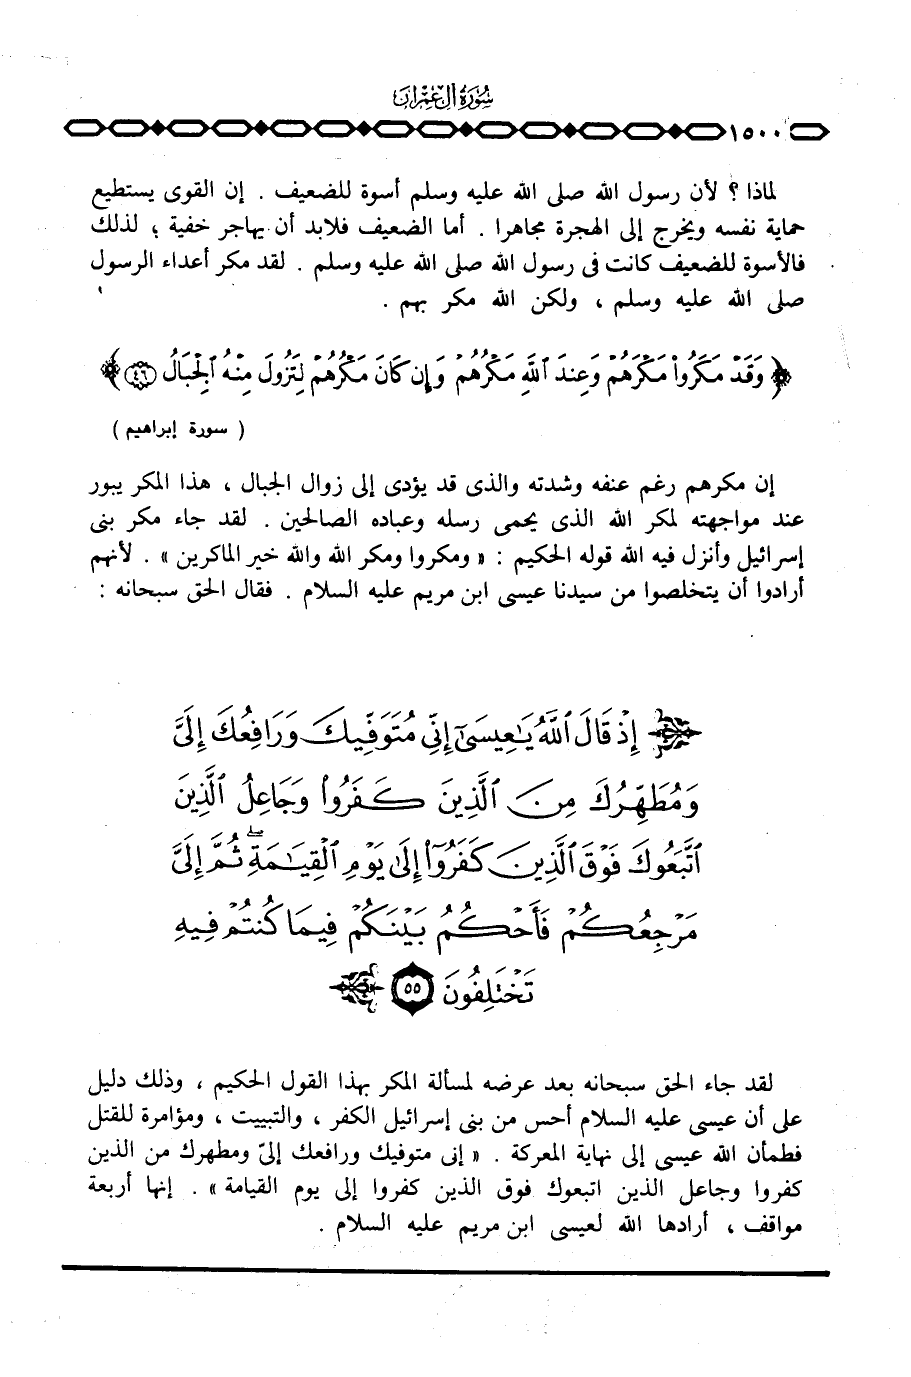 سُورَةُ آلِ عِمْرَانَ
١٥٠٠
لماذا ؟ لأن رسول الله صلى الله عليه وسلم أسوة للضعيف . إن القوى يستطيع
حماية نفسه ويخرج إلى الهجرة مجاهرا . أما الضعيف فلابد أن يهاجر خفية ؛ لذلك
فالأسوة للضعيف كانت فى رسول الله صلى الله عليه وسلم . لقد مكر أعداء الرسول
صلى الله عليه وسلم ، ولكن الله مكر بهم .
﴿ وَقَدْ مَكَرُوا۟ مَكْرَهُمْ وَعِندَ ٱللَّهِ مَكْرُهُمْ وَإِن كَانَ مَكْرُهُمْ لِتَزُولَ مِنْهُ ٱلْجِبَالُ ٤٦ ﴾
( سورة إبراهيم )
إن مكرهم رغم عنفه وشدته والذى قد يؤدى إلى زوال الجبال ، هذا المكر يبور
عند مواجهته لمكر الله الذى يحمى رسله وعباده الصالحين . لقد جاء مكر بنى
إسرائيل وأنزل فيه الله قوله الحكيم : « ومكروا ومكر الله والله خير الماكرين » . لأنهم
أرادوا أن يتخلصوا من سيدنا عيسى ابن مريم عليه السلام . فقال الحق سبحانه :
إِذْ قَالَ ٱللَّهُ يَـٰعِيسَىٰٓ إِنِّى مُتَوَفِّيكَ وَرَافِعُكَ إِلَىَّ
وَمُطَهِّرُكَ مِنَ ٱلَّذِينَ كَفَرُوا۟ وَجَاعِلُ ٱلَّذِينَ
ٱتَّبَعُوكَ فَوْقَ ٱلَّذِينَ كَفَرُوٓا۟ إِلَىٰ يَوْمِ ٱلْقِيَـٰمَةِ ۖ ثُمَّ إِلَىَّ
مَرْجِعُكُمْ فَأَحْكُمُ بَيْنَكُمْ فِيمَا كُنتُمْ فِيهِ
تَخْتَلِفُونَ ٥٥
لقد جاء الحق سبحانه بعد عرضه لمسألة المكر بهذا القول الحكيم ، وذلك دليل
على أن عيسى عليه السلام أحس من بنى إسرائيل الكفر ، والتبييت ، ومؤامرة للقتل
فطمأن الله عيسى إلى نهاية المعركة . « إنى متوفيك ورافعك إلىّ ومطهرك من الذين
كفروا وجاعل الذين اتبعوك فوق الذين كفروا إلى يوم القيامة » . إنها أربعة
مواقف ، أرادها الله لعيسى ابن مريم عليه السلام .